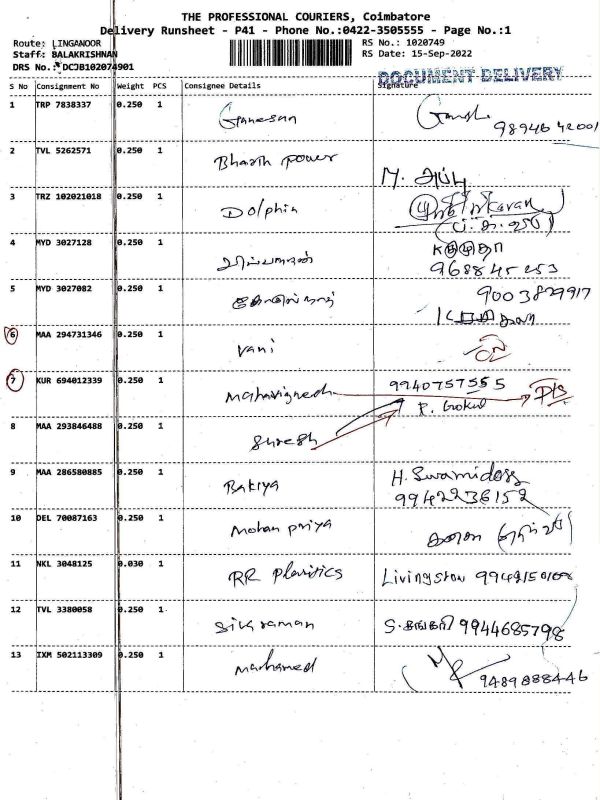 THE PROFESSIONAL COURIERS, Coimbatore
Delivery Runsheet - P41 - Phone No.:0422-3505555 - Page No.:1
Route: LINGANOOR
Staff: BALAKRISHNAN
DRS No.: DCJB102074901
RS No.: 1020749
RS Date: 15-Sep-2022
DOCUMENT DELIVERY
S No Consignment No Weight PCS Consignee Details Signature
1 TRP 7838337 0.250 1 Ganesan
98946 42001
2 TVL 5262571 0.250 1 Bharth power
M.
3 TRZ 102021018 0.250 1 Dolphin
4 MYD 3027128 0.250 1
968845253
5 MYD 3027082 0.250 1 9003829917
6 MAA 294731346 0.250 1 Vani
7 KUR 694012339 0.250 1 Mahavignesh 9940757555
P. Gokul
8 MAA 293846488 0.250 1 Suresh
9 MAA 286580885 0.250 1 Bakiya H. Swamidoss
9942236152
10 DEL 70087163 0.250 1 Mohan priya
11 NKL 3048125 0.030 1 RR Plastics Livingston
12 TVL 3380058 0.250 1 Sivaraman 9944685798
13 IXM 502113309 0.250 1 Mohamed
9489888446